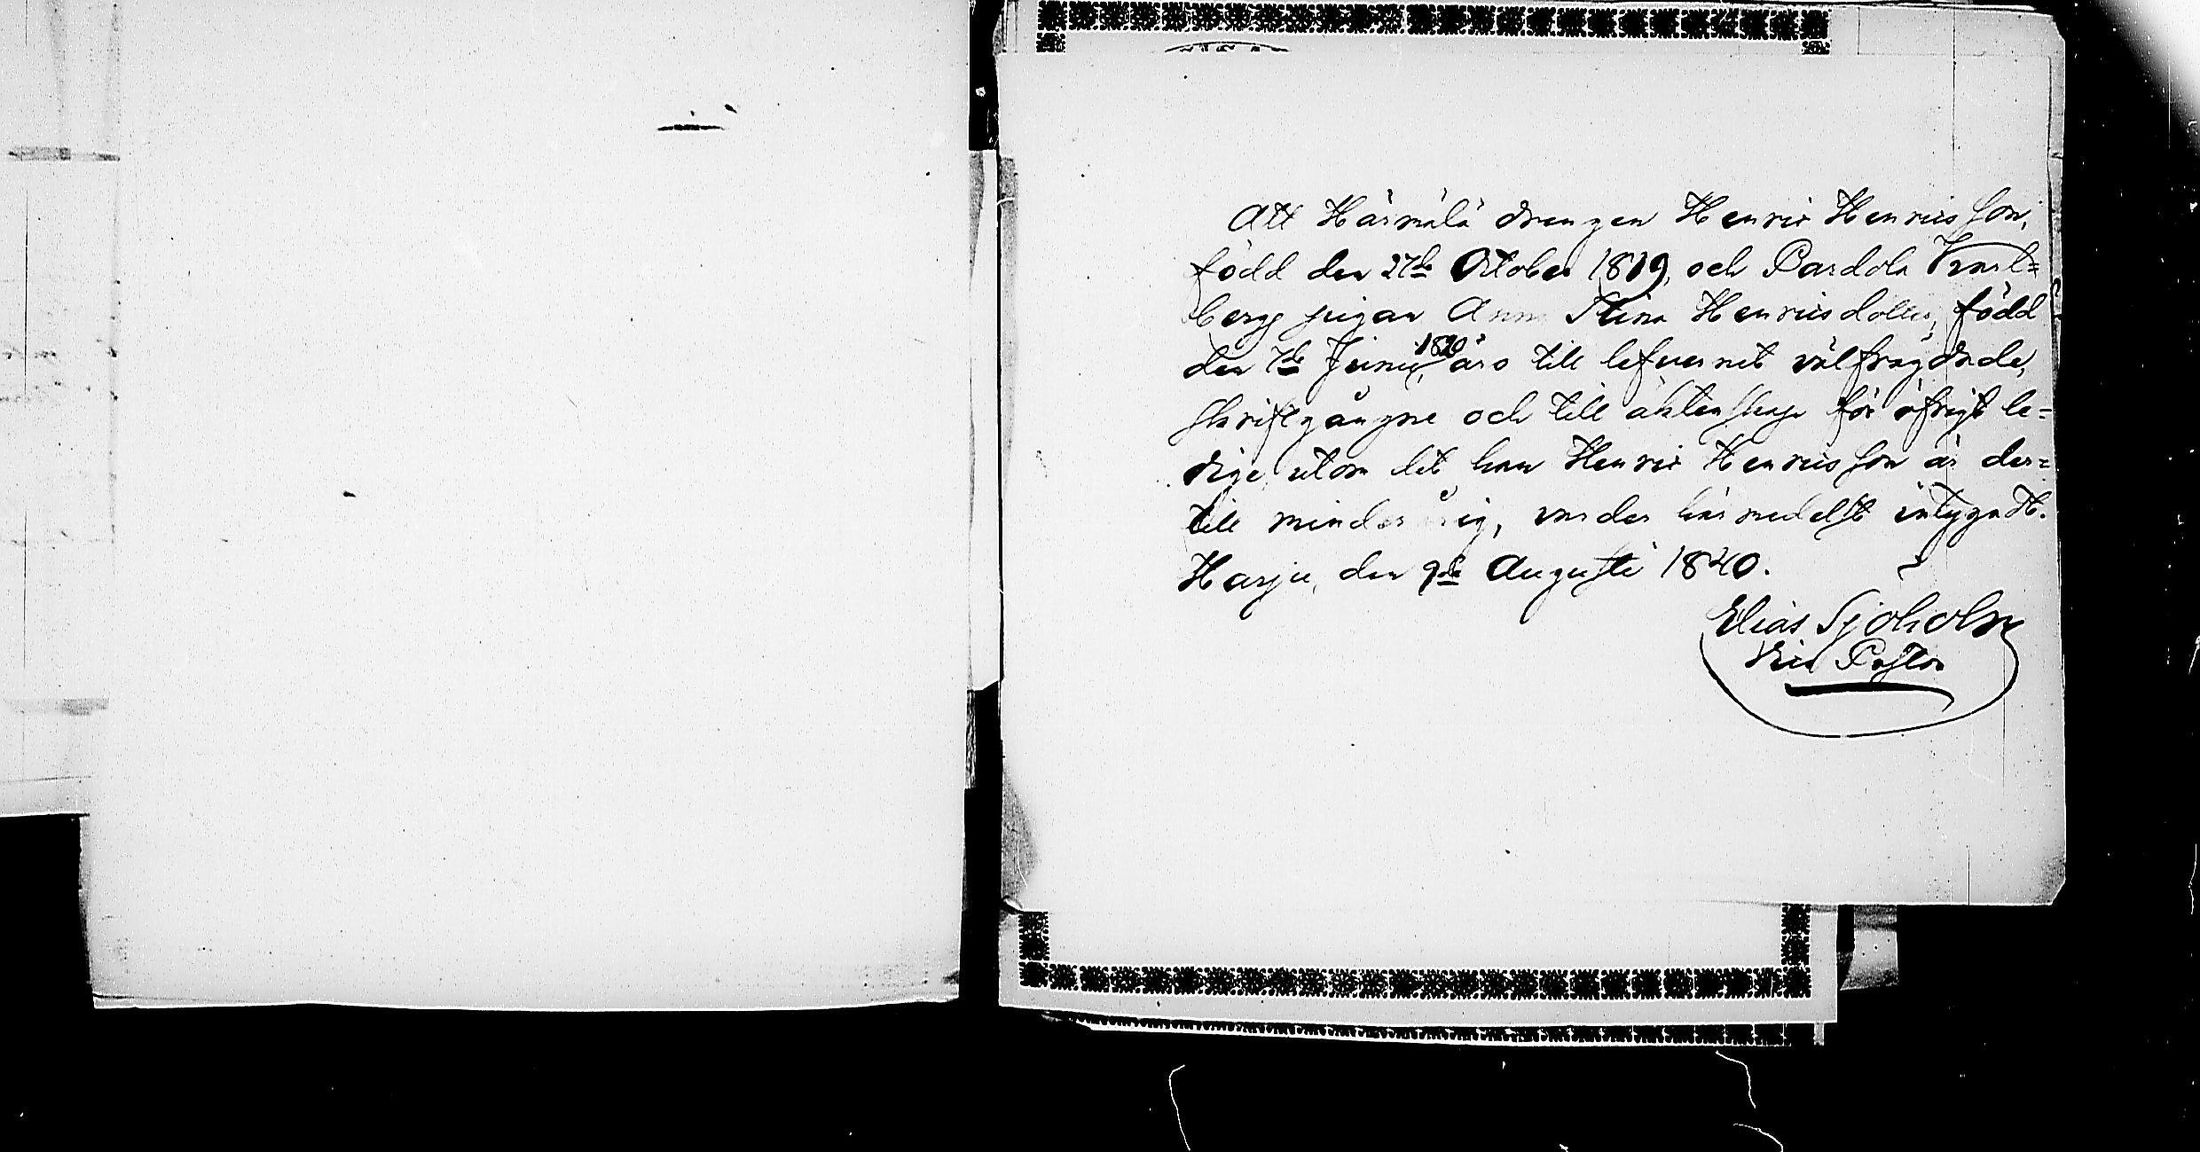 Att Härmälä drengen Henric Henricsson,
född den 27de October 1819, och Pardola Qvarl=
berg pigan Anna Stina Henricsdotter, född
den 7de Junii, 1820 äro till lefvernet välfrägdade,
skriftgångne och till äktenskap för öfrigt le=
dige utom det han Henric Henricsson är der=
till minderårig, varder härmedelst intygadt.
Harju, den 9de Augusti 1840.
Elias Sjöholm
Vice Pastor